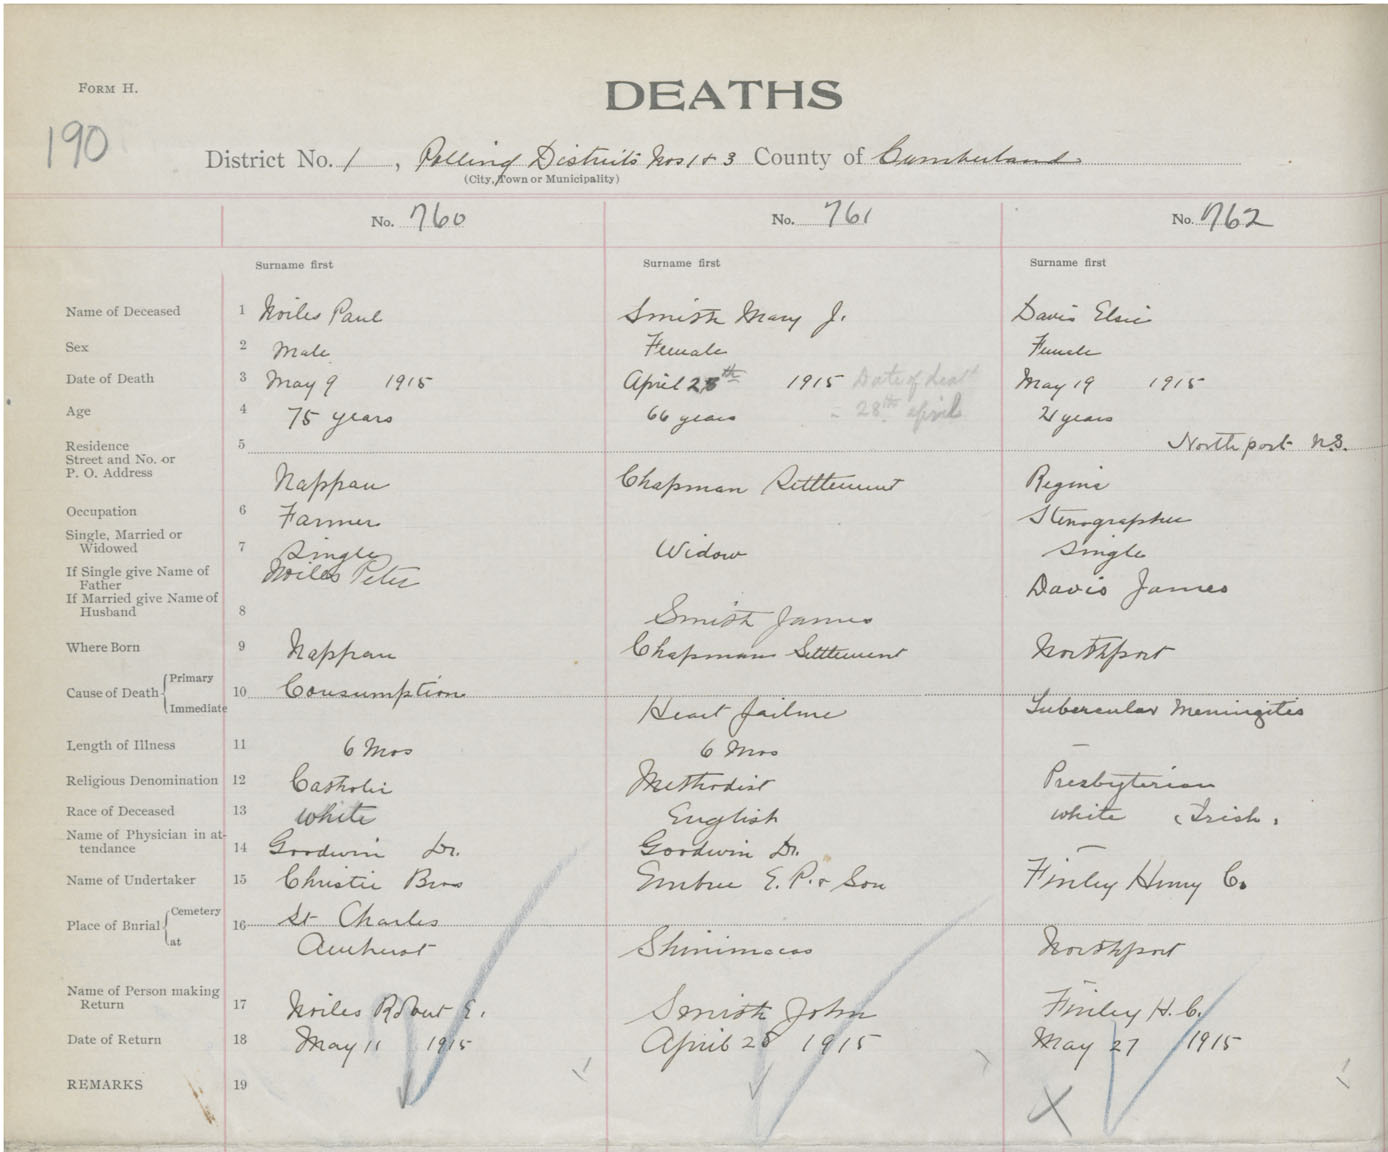 FORM H.
DEATHS
190
District No. 1, Polling Districts Nos 1 & 3 County of Cumberland
(City, Town or Municipality)
No. 760 No. 761 No. 762
Surname first Surname first Surname first
Name of Deceased 1 Noiles Paul Smith Mary J. Davis Elsie
Sex 2 Male Female Female
Date of Death 3 May 9 1915 April 28th 1915 Date of death May 19 1915
Age 4 75 years 66 years 28th April 21 years
Residence 5 Northport N.S.
Street and No. or
P. O. Address Nappan Chapman Settlement Regina
Occupation 6 Farmer Stenographer
Single, Married or
Widowed 7 Single Widow Single
If Single give Name of
Father Noiles Peter Davis James
If Married give Name of
Husband 8 Smith James
Where Born 9 Nappan Chapman Settlement Northport
Cause of Death Primary 10 Consumption
Immediate Heart failure Tubercular Meningitis
Length of Illness 11 6 Mos 6 Mos —
Religious Denomination 12 Catholic Methodist Presbyterian
Race of Deceased 13 white English white (Irish.
Name of Physician in at-
tendance 14 Goodwin Dr. Goodwin Dr. —
Name of Undertaker 15 Christie Bros Embree E. P. & Son Finley Henry C.
Place of Burial Cemetery 16 St Charles
at Amherst Shinimacas Northport
Name of Person making
Return 17 Noiles Robert E. Smith John Finley H. C.
Date of Return 18 May 11 1915 April 28 1915 May 27 1915
REMARKS 19